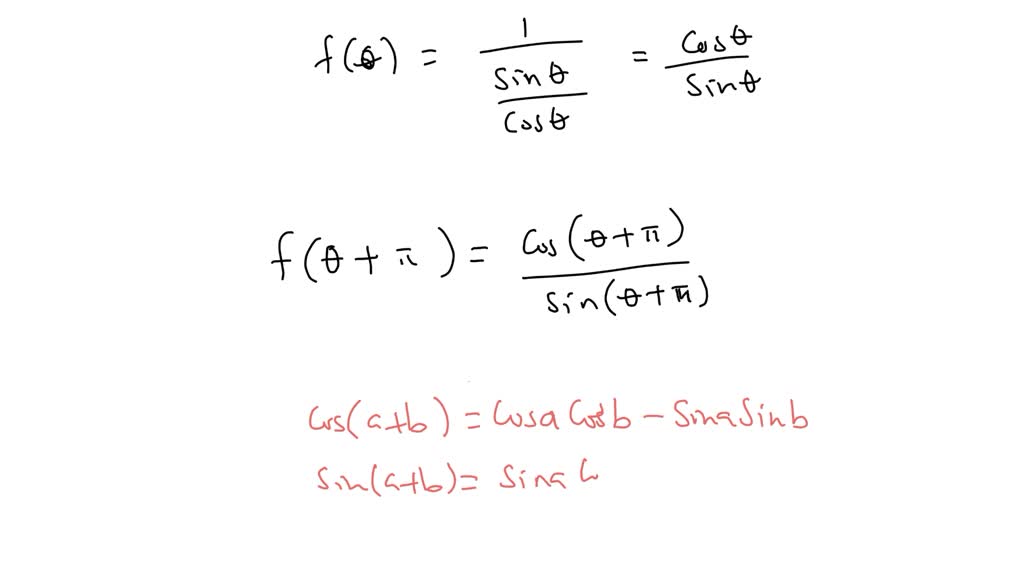 f(θ) = 1 / (sinθ / cosθ) = cosθ / sinθ
f(θ + π) = cos(θ + π) / sin(θ + π)
cos(a+b) = cosa cosb − sina sinb
sin(a+b) = sina